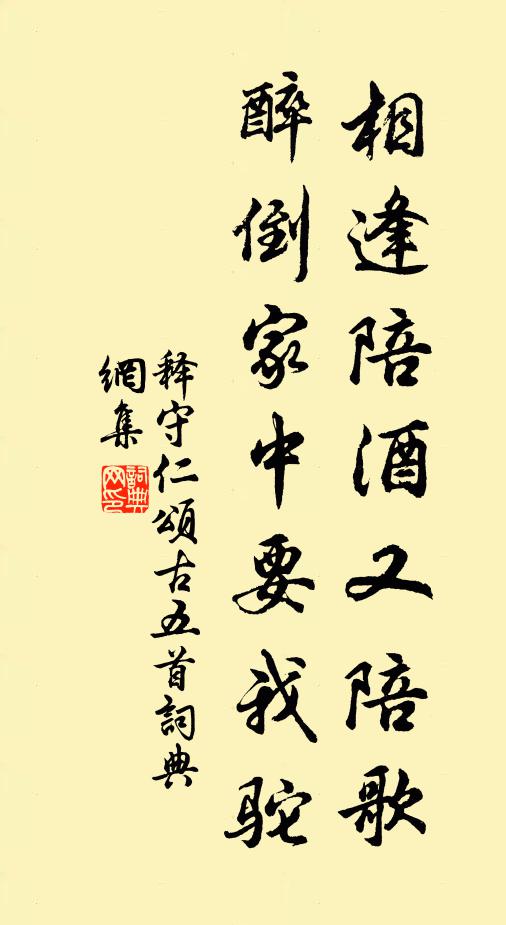 相逢陪酒又陪歌
醉倒家中要我駝
释守仁頌古五首詞典
網集
詞典
网印